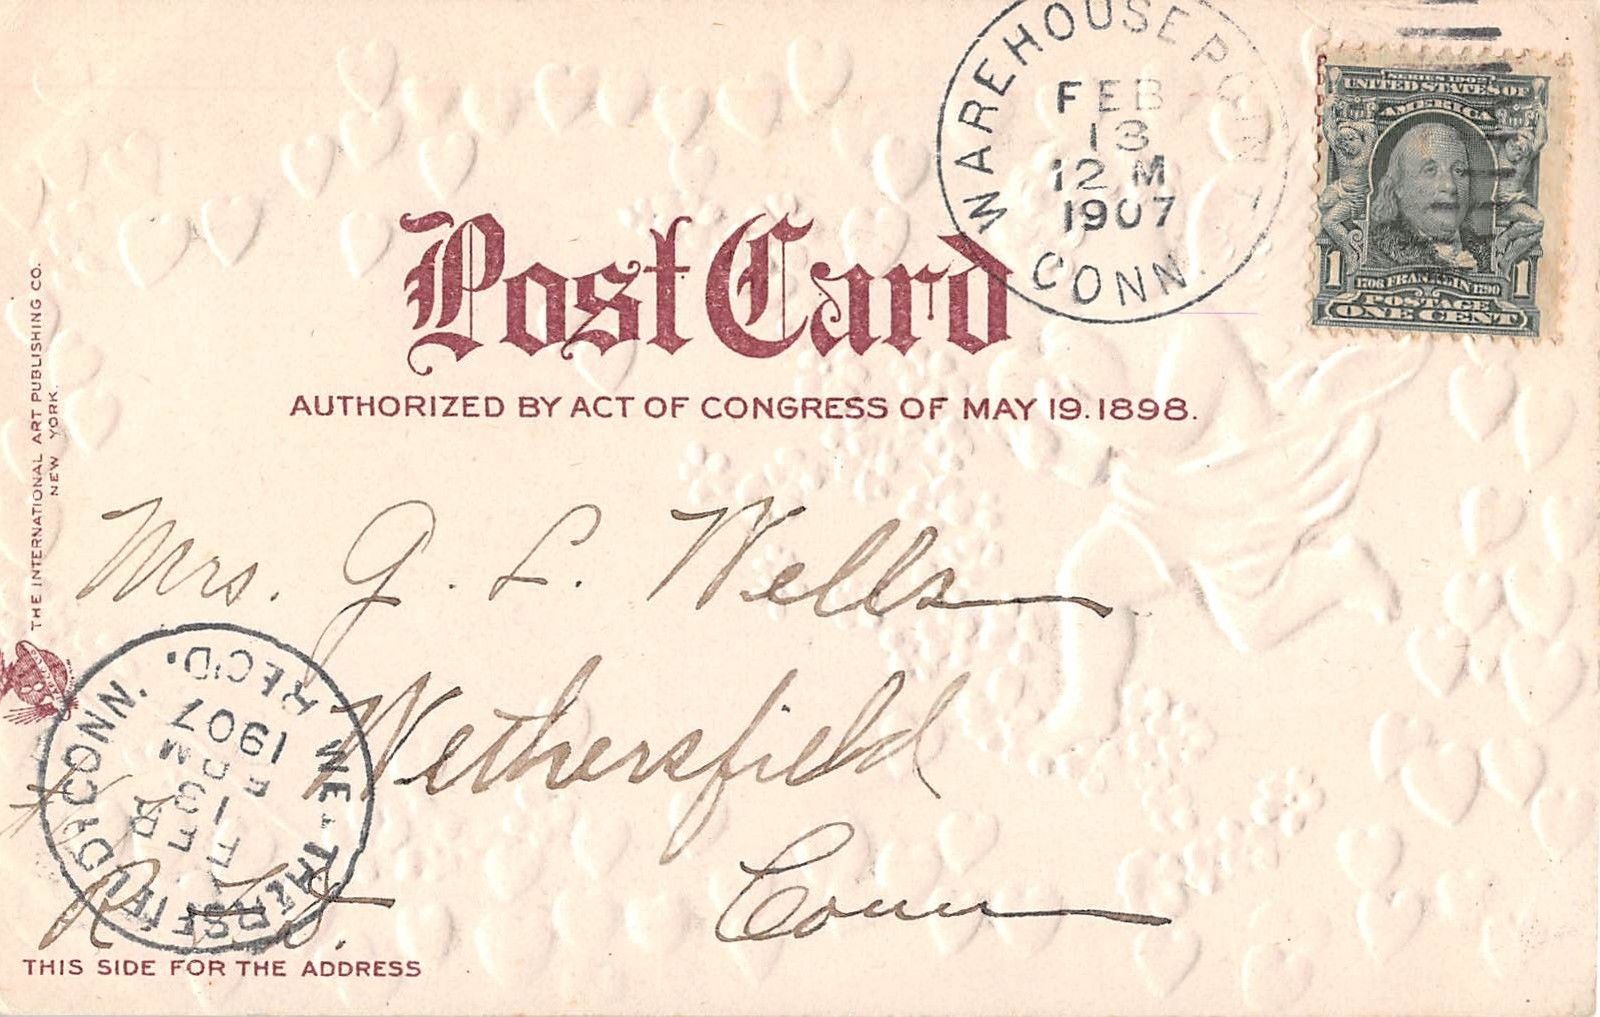 WAREHOUSE POINT
FEB
13
12 M
1907
CONN.
SERIES 1902
UNITED STATES OF
AMERICA
1706 FRANKLIN 1790
1 POSTAGE 1
ONE CENT
Post Card
AUTHORIZED BY ACT OF CONGRESS OF MAY 19. 1898.
THE INTERNATIONAL ART PUBLISHING CO.
NEW YORK.
Mrs. G. L. Wells
Wethersfield
Conn
WETHERSFIELD CONN.
FEB
1907
REC'D.
R.
THIS SIDE FOR THE ADDRESS